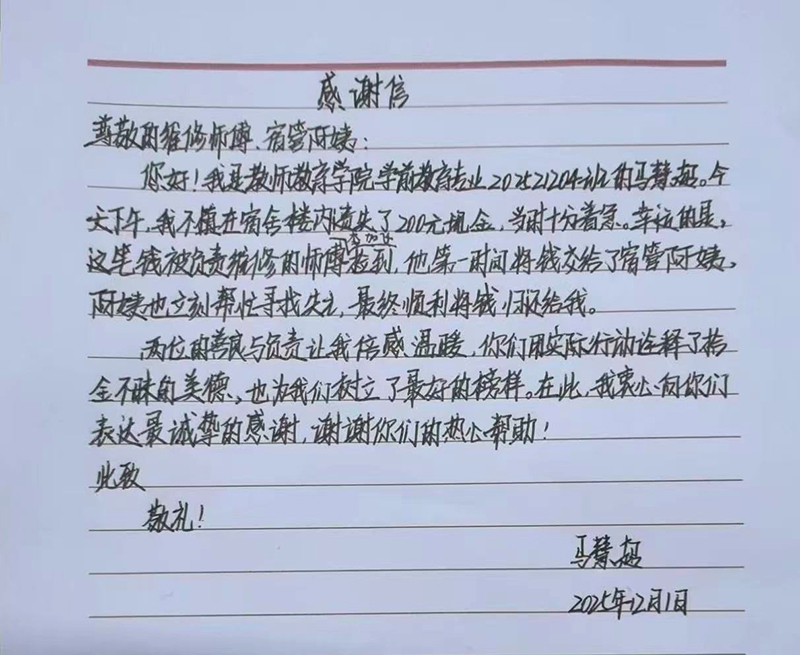 感谢信
尊敬的维修师傅、宿管阿姨：
你好！我是教师教育学院学前教育专业202521204班的马慧。今
天下午，我不慎在宿舍楼内遗失了200元现金，当时十分着急。幸运的是，
这笔钱被负责维修的师傅捡到，他第一时间将钱交给了宿管阿姨，
阿姨也立刻帮忙寻找失主，最终顺利将钱归还给我。
两位的善良与负责让我倍感温暖，你们用实际行动诠释了拾
金不昧的美德，也为我们树立了最好的榜样。在此，我衷心向你们
表达最诚挚的感谢，谢谢你们的热心帮助！
此致
敬礼！
马慧
2025年12月1日